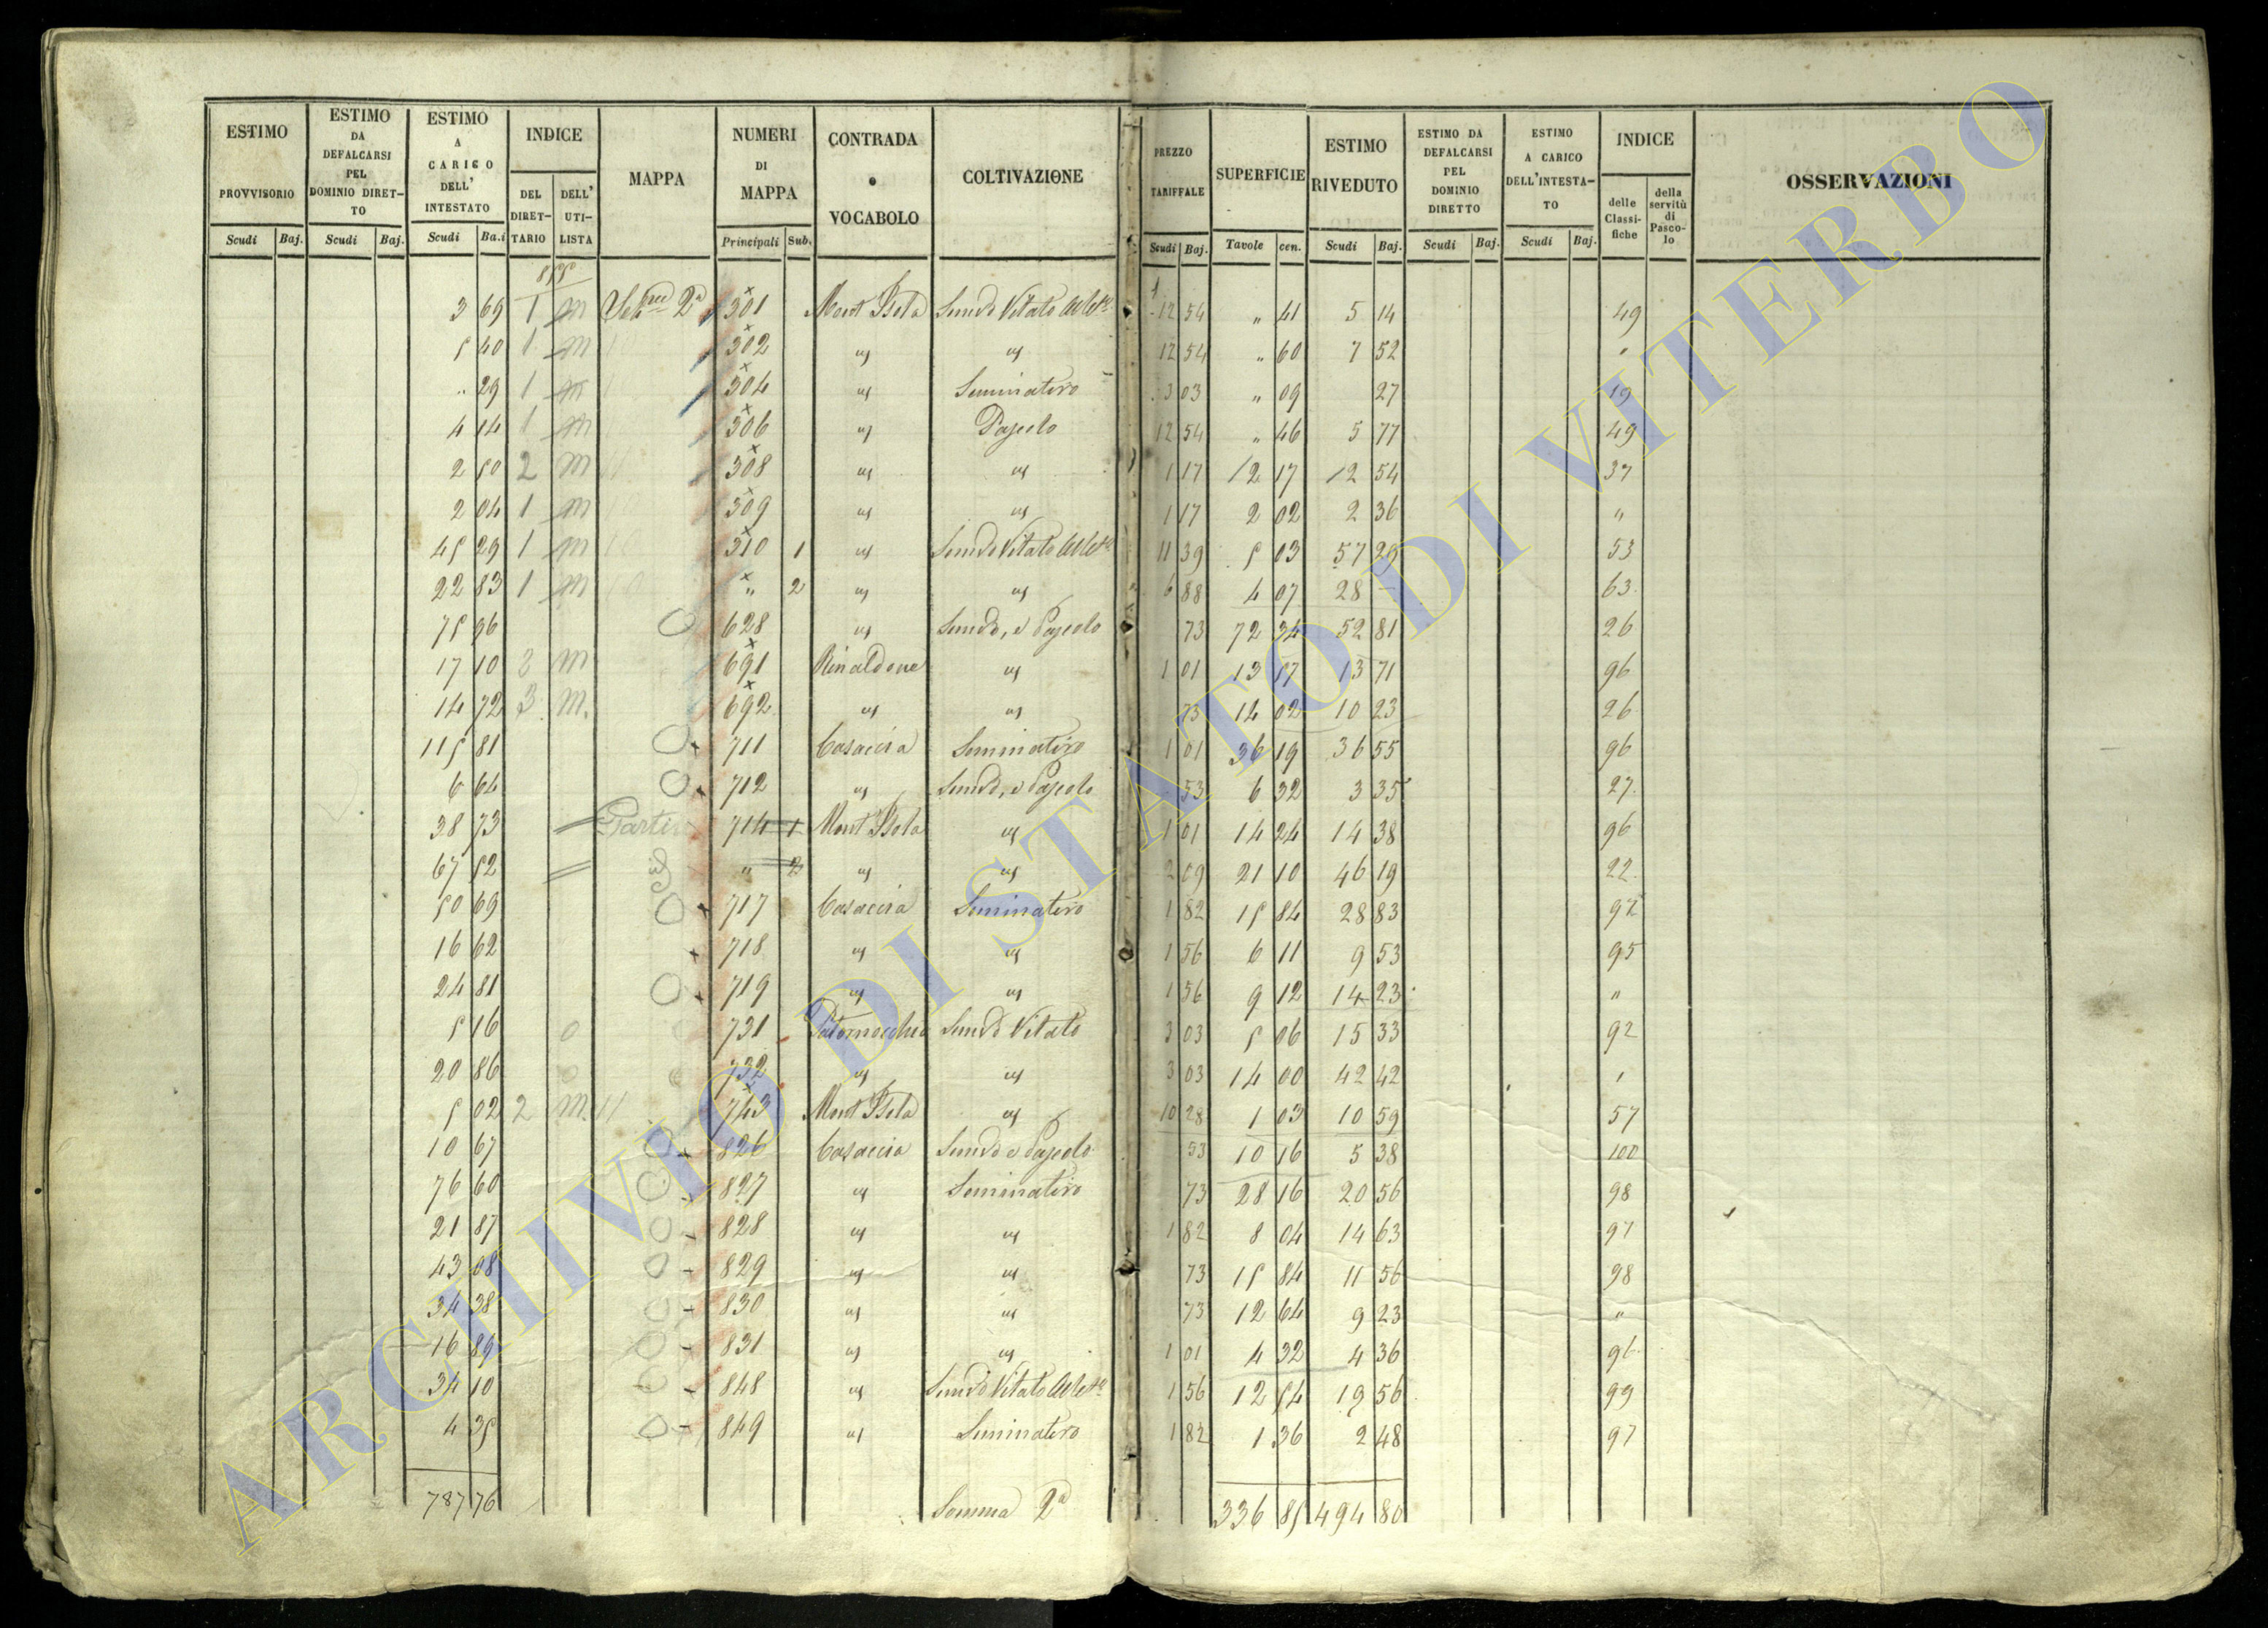 ESTIMO PROVVISORIO Scudi Baj.
ESTIMO DA DEFALCARSI PEL DOMINIO DIRETTO Scudi Baj.
ESTIMO A CARICO DELL' INTESTATO Scudi Ba.i
INDICE DEL DIRETTARIO DELL' UTILISTA
MAPPA
NUMERI DI MAPPA Principali Sub.
CONTRADA o VOCABOLO
COLTIVAZIONE
PREZZO TARIFFALE Scudi Baj.
SUPERFICIE Tavole cen.
ESTIMO RIVEDUTO Scudi Baj.
ESTIMO DA DEFALCARSI PEL DOMINIO DIRETTO Scudi Baj.
ESTIMO A CARICO DELL'INTESTATO Scudi Baj.
INDICE delle Classifiche della servitù di Pascolo
OSSERVAZIONI
3 69 1 m 2a 301 Mont Isola Semvo Vitato 12 54 " 41 5 14 49
5 40 1 m 302 " " 12 54 " 60 7 52 "
" 29 1 m 304 " Seminativo 3 03 " 09 27 19
4 14 1 m 306 " Pascolo 12 54 " 46 5 77 49
2 50 2 m 308 " " 1 17 2 17 2 54 37
2 04 1 m 309 " " 1 17 2 02 2 36 "
45 29 1 m 310 1 " Semvo Vitato 11 39 5 03 57 29 53
22 83 1 m " 2 " " 6 88 4 07 28 - 63
75 96 628 " Semvo, e Pascolo 73 72 34 52 81 26
17 10 2 m 691 Rinaldone " 1 01 13 57 13 71 96
14 72 3 m. 692 " " 73 14 02 10 23 26
115 81 711 Casaccia Seminativo 1 01 36 19 36 55 96
6 64 712 " Semvo, e Pascolo 53 6 32 3 35 27
38 73 714 1 Mont Isola " 1 01 14 24 14 38 96
67 52 " 2 " " 2 09 21 10 46 19 22
50 69 717 Casaccia Seminativo 1 82 15 84 28 83 97
16 62 718 " " 1 56 6 11 9 53 95
24 81 719 " " 1 56 9 12 14 23 "
5 16 731 Semvo Vitato 3 03 5 06 15 33 92
20 86 732 " " 3 03 14 00 42 42 "
5 02 2 m. 11 743 Mont Isola " 10 28 1 03 10 59 57
10 67 826 Casaccia Semvo e Pascolo 53 10 16 5 38 100
76 60 827 " Seminativo 73 28 16 20 56 98
21 87 828 " " 1 82 8 04 14 63 97
43 08 829 " " 73 15 84 11 56 98
34 38 830 " " 73 12 64 9 23 "
16 89 831 " " 1 01 4 32 4 36 96
34 10 848 " Semvo Vitato 1 56 12 54 19 56 99
4 35 849 " Seminativo 1 82 1 36 2 48 97
787 76 Somma 2a 336 85 494 80
ARCHIVIO DI STATO DI VITERBO